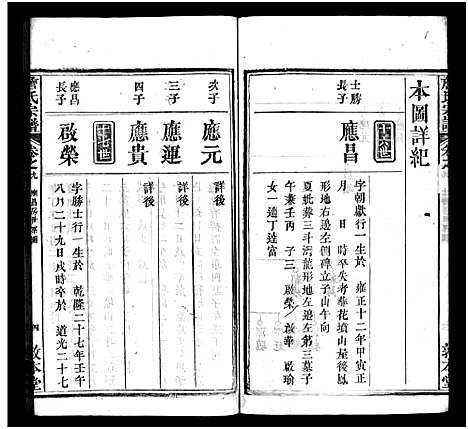 本圖詳紀
十六世
士勝
長子
應昌
字朝獻行一生於 雍正十二年甲寅正
月 日 時卒失考葬花墳山屋後鳳
形地右邊左側碑立子山午向
夏妣葬三斗灣龍形地左邊第三墓子
午兼壬丙 子三 啟榮 啟華 啟瑜
女一適丁達富
次子
應元
詳後
三子
應運
詳後
四子
應貴
詳後
十七世
應昌
長子
啟榮
字勝士行一生於 乾隆二十七年壬午
八月二十九日戌時卒於 道光二十七
氏宗譜
卷之九
四
敦本堂
敦本堂